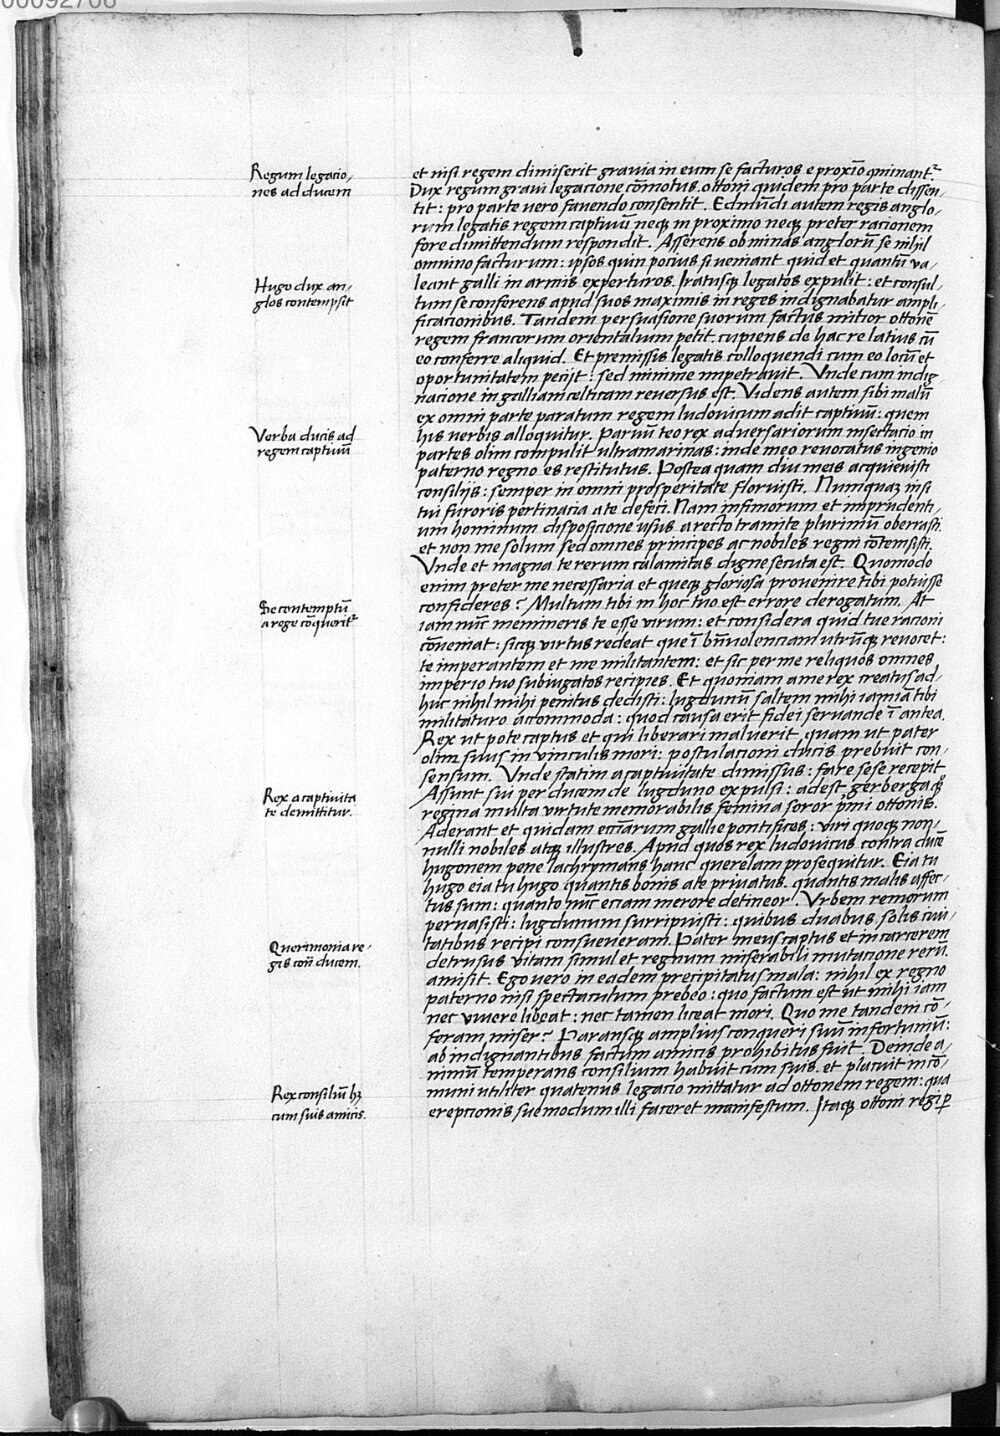 00092706
Regum legacio,
nes ad ducem
Hugo dux an,
glos contempsit
Verba ducis ad
regem captiuū
Se contemptū
a rege cōquerit᷑
Rex a captiuita
te demittitur.
Querimonia re,
gis cont̄ ducem.
Rex consiliū hꝫ
cum suis amicis.
et nisi regem dimiserit grauia in eum se facturos e proxīo ꝯminant᷑.
Dux regum graui legacione cōmotus. ottoni quidem pro parte dissen,
tit: pro parte vero fauendo consentit. Edmūdi autem regis anglo,
rum legatis regem captiuū neqꝫ in proximo neqꝫ preter racionem
fore dimittendum respondit. Asserens ob minas anglorū se nihil
omnino facturum: ipsos quin pocius si veniant quid et quantū va,
leant galli in armis experturos. Iratusqꝫ legatos expulit: et consul,
tum se conferens apud suos maximis in reges indignabatur ampli,
ficacionibus. Tandem persuasione suorum factus mitior ottonē
regem francorum orientalium petit. cupiens de hac re latius cū
eo conferre aliquid. Et premissis legatis colloquendi cum eo locū et
oportunitatem peciit: sed minime impetrauit. Vnde cum indig,
nacione in galliam celticam reuersus est. Videns autem sibi malū
ex omni parte paratum regem ludouicum adit captiuū: quem
his verbis alloquitur. Paruū te o rex aduersariorum insectacio in
partes olim compulit ultramarinas: inde meo reuocatus ingenio
paterno regno es restitutus. Postea quam diu meis acquieuisti
consilijs: semper in omni prosperitate floruisti. Numquaꝫ nisi
tui furoris pertinacia a te defeci. Nam infimorum et imprudenti,
um hominum disposicione usus a recto tramite plurimū oberrasti.
et non me solum sed omnes principes ac nobiles regni cōtemsisti.
Vnde et magna te rerum calamitas digne secuta est. Quomodo
enim preter me necessaria et queqꝫ gloriosa prouenire tibi potuisse
confideres? Multum tibi in hoc tuo est errore derogatum. At
iam nūc memineris te esse virum: et considera quid tue racioni
cōueniat: sicqꝫ virtus redeat que ī bn̄iuolenciam utrūqꝫ reuocet:
te imperantem et me militantem: et sic per me reliquos omnes
imperio tuo subiugatos recipies. Et quoniam a me rex creatus ad,
huc nihil mihi penitus dedisti: lugdunū saltem mihi iam iā tibi
militaturo accommoda: quod causa erit fidei seruande ī antea.
Rex ut pote captus et qui liberari maluerit quam ut pater
olim suus in vinculis mori: postulacioni ducis prebuit con,
sensum. Vnde statim a captiuitate dimissus: fare sese recepit.
Assunt sui per ducem de lugduno expulsi: adest gerbergaqꝫ
regina multa virtute memorabilis femina soror pīmi ottonis.
Aderant et quidam eciā arum gallie pontifices: viri quoqꝫ non,
nulli nobiles atqꝫ illustres. Apud quos rex ludouicus contra ducē
hugonem pene lachrymans hanc querelam prosequitur. Eia tu
hugo eia tu hugo quantis bonis a te priuatus. quantis malis affec,
tus sum: quanto nūc eciam merore detineor. Vrbem remorum
peruasisti: lugdunum surripuisti: quibus duabus solis ciui,
tatibus recipi consueueram. Pater meus captus et in carcerem
detrusus vitam simul et regnum miserabili mutacione rerū.
amisit. Ego vero in eadem precipitatus mala: nihil ex regno
paterno nisi spectaculum prebeo: quo factum est ut mihi iam
nec viuere libeat: nec tamen liceat mori. Quo me tandem cō,
feram miser? Paransqꝫ amplius conqueri suū infortuniū:
ab indignantibus factum amicis prohibitus fuit. Deinde a,
nimū temperans consilium habuit cum suis. et placuit in cō,
muni utiliter quatenus legacio mittatur ad ottonem regem: qua
erepcionis sue modum illi faceret manifestum. Itaqꝫ ottoni regi ꝑ